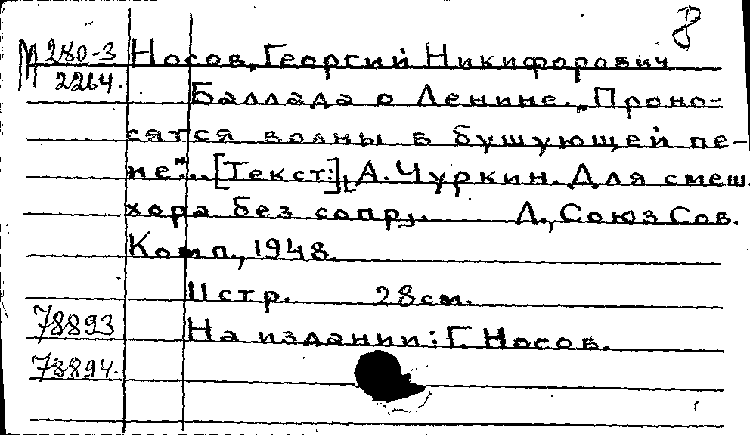 8
М 280-3 Носов, Георгий Никифорович
2264. Баллада о Ленине. „Проно-
сятся волны в бушующей пе-
не"... [Текст:], А. Чуркин. Для смеш.
хора без сопр. Л., Союз Сов.
Комп., 1948.
11 стр. 28 см.
78893 На издании: Г. Носов.
78894.